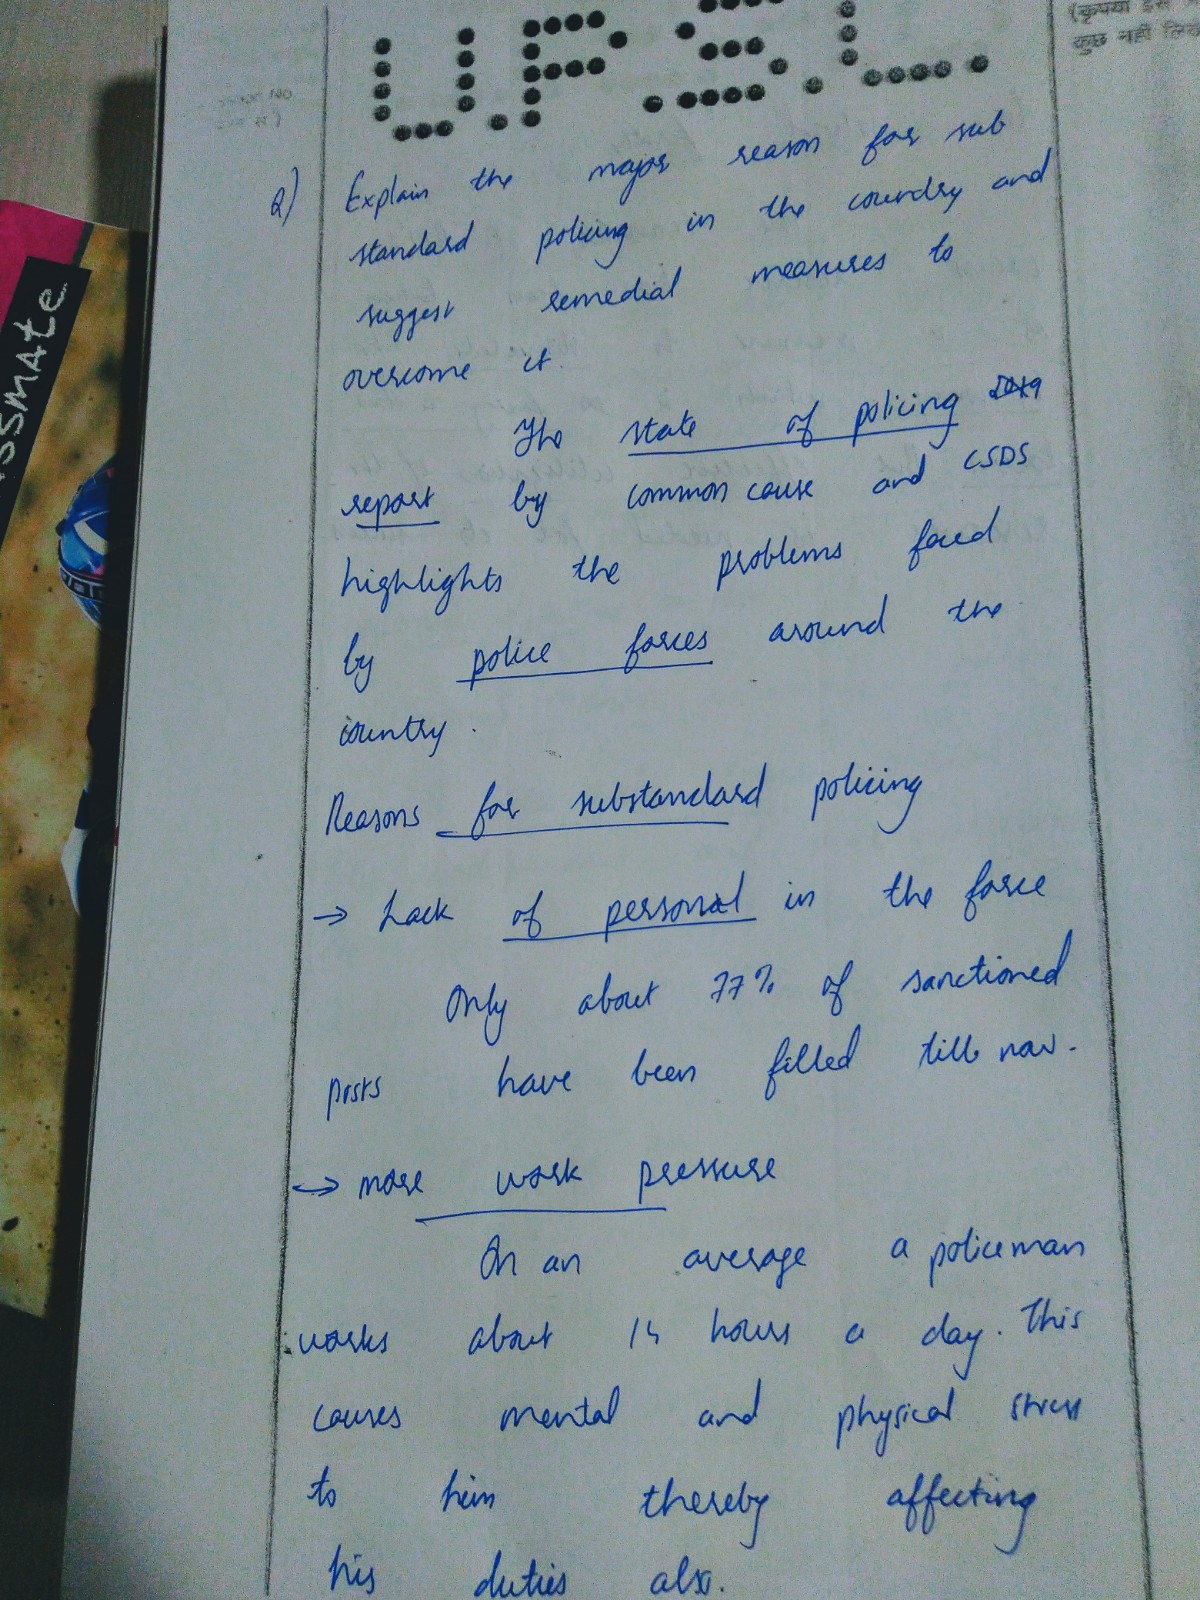 U.P.S.C.
(कृपया इस
कुछ नहीं
ssmate
Q) Explain the major reason for sub
standard policing in the country and
suggest remedial measures to
overcome it.
The state of policing 2019
report by common cause and CSDS
highlights the problems faced
by police forces around the
country.
Reasons for substandard policing
→ Lack of personal in the force
Only about 77% of sanctioned
posts have been filled till now.
→ more work pressure
On an average a policeman
works about 14 hours a day. This
causes mental and physical stress
to him thereby affecting
his duties also.